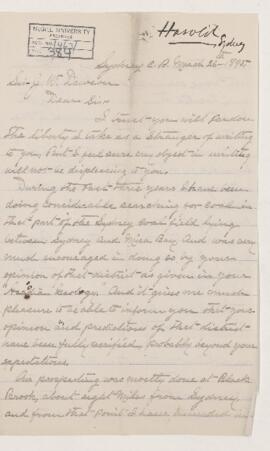 McGILL UNIVERSITY
ARCHIVES
ACC. NO. 1
REF. 38
Harold
Sydney
Sydney C. B. March 26th 1895
Sir J. W. Dawson
Dear Sir
I trust you will pardon
the liberty I take as a stranger of writing
to you, But I feel sure my object in writing
will not be displeasing to you.
During the past three years I have been
doing considerable searching for coal in
that part of the Sydney coal field lying
between Sydney and Mira Bay, And was very
much encouraged in doing so by your
opinion of that district as given in your
"Acadian Geology" And it gives me much
pleasure to be able to inform you that your
opinion and predictions of that district
have been fully verified, probably beyond your
expectations.
Our prospecting was mostly done at Black
Brook, about eight Miles from Sydney,
and from that point I have